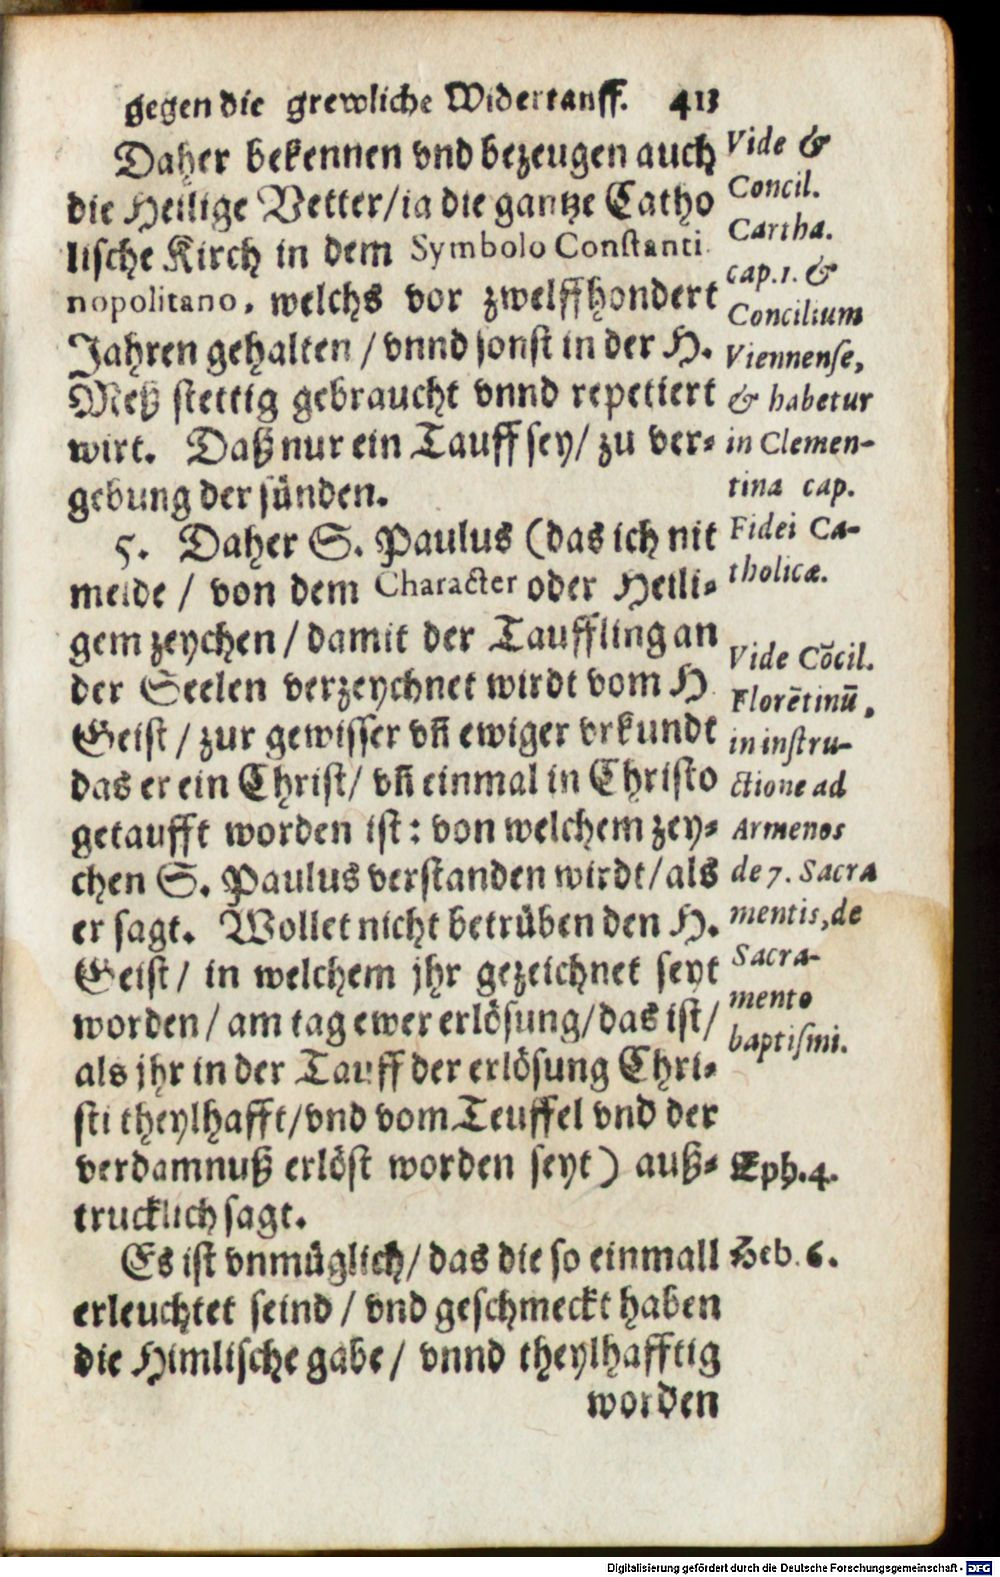 gegen die grewliche Widertauff. 413
Daher bekennen vnd bezeugen auch
die Heilige Vetter/ia die gantze Catho
lische Kirch in dem Symbolo Constanti
nopolitano, welchs vor zwelffhondert
Jahren gehalten / vnnd sonst in der H.
Meß stettig gebraucht vnnd repetiert
wirt. Daß nur ein Tauff sey/ zu ver-
gebung der sünden.
5. Daher S. Paulus (das ich nit
meide / von dem Character oder Heili-
gem zeychen / damit der Tauffling an
der Seelen verzeychnet wirdt vom H.
Geist / zur gewisser vn̄ ewiger vrkundt
das er ein Christ/ vn̄ einmal in Christo
getaufft worden ist: von welchem zey-
chen S. Paulus verstanden wirdt/als
er sagt. Wollet nicht betrüben den H.
Geist/ in welchem jhr gezeichnet seyt
worden/ am tag ewer erlösung/das ist/
als jhr in der Tauff der erlösung Chri-
sti theylhafft/vnd vom Teuffel vnd der
verdamnuß erlöst worden seyt) auß-
trucklich sagt.
Es ist vnmüglich/ das die so einmall
erleuchtet seind / vnd geschmeckt haben
die Himlische gabe/ vnnd theylhafftig
worden
Vide &
Concil.
Cartha.
cap.1. &
Concilium
Viennense,
& habetur
in Clemen-
tina cap.
Fidei Ca-
tholicæ.
Vide Cōcil.
Florētinū,
in instru-
ctione ad
Armenos
de 7. Sacra
mentis, de
Sacra-
mento
baptismi.
Eph.4.
Heb. 6.
Digitalisierung gefördert durch die Deutsche Forschungsgemeinschaft - DFG